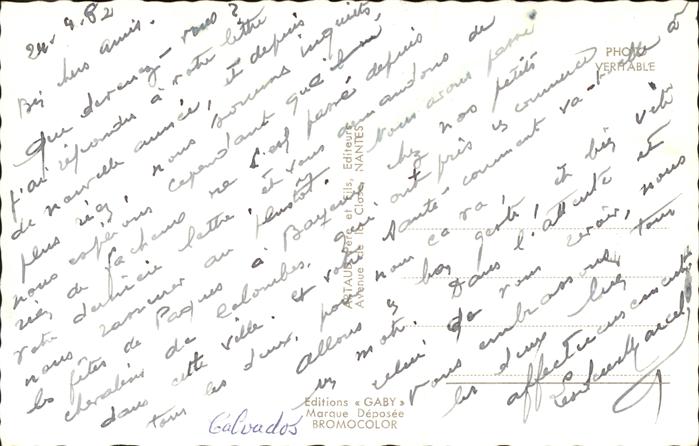 24.4.82
Bien chers amis.
Que devenez-vous ?
j'ai répondu à votre lettre
de nouvelle année, et depuis
plus rien, nous sommes inquiets,
nous espérons cependant qu'il ne
s'est passé depuis
votre dernière lettre, et vous demandons de
nous rassurer au plus tôt. Nous avons passé
les fêtes de Pâques à Bayeux, chez nos petits
de Colombes, qui ont pris un commerce
dans cette ville. et votre santé comment va-t-elle à
tous les deux, pour nous ça va,
allons, bien vite
un mot. Dans l'attente et
celui de vous revoir, nous
vous embrassons tous
les deux bien
affectueusement.
PHOTO
VERITABLE
ARTAUD Père et Fils, Editeurs
Avenue de la Close, NANTES
Editions « GABY »
Marque Déposée
BROMOCOLOR
Calvados